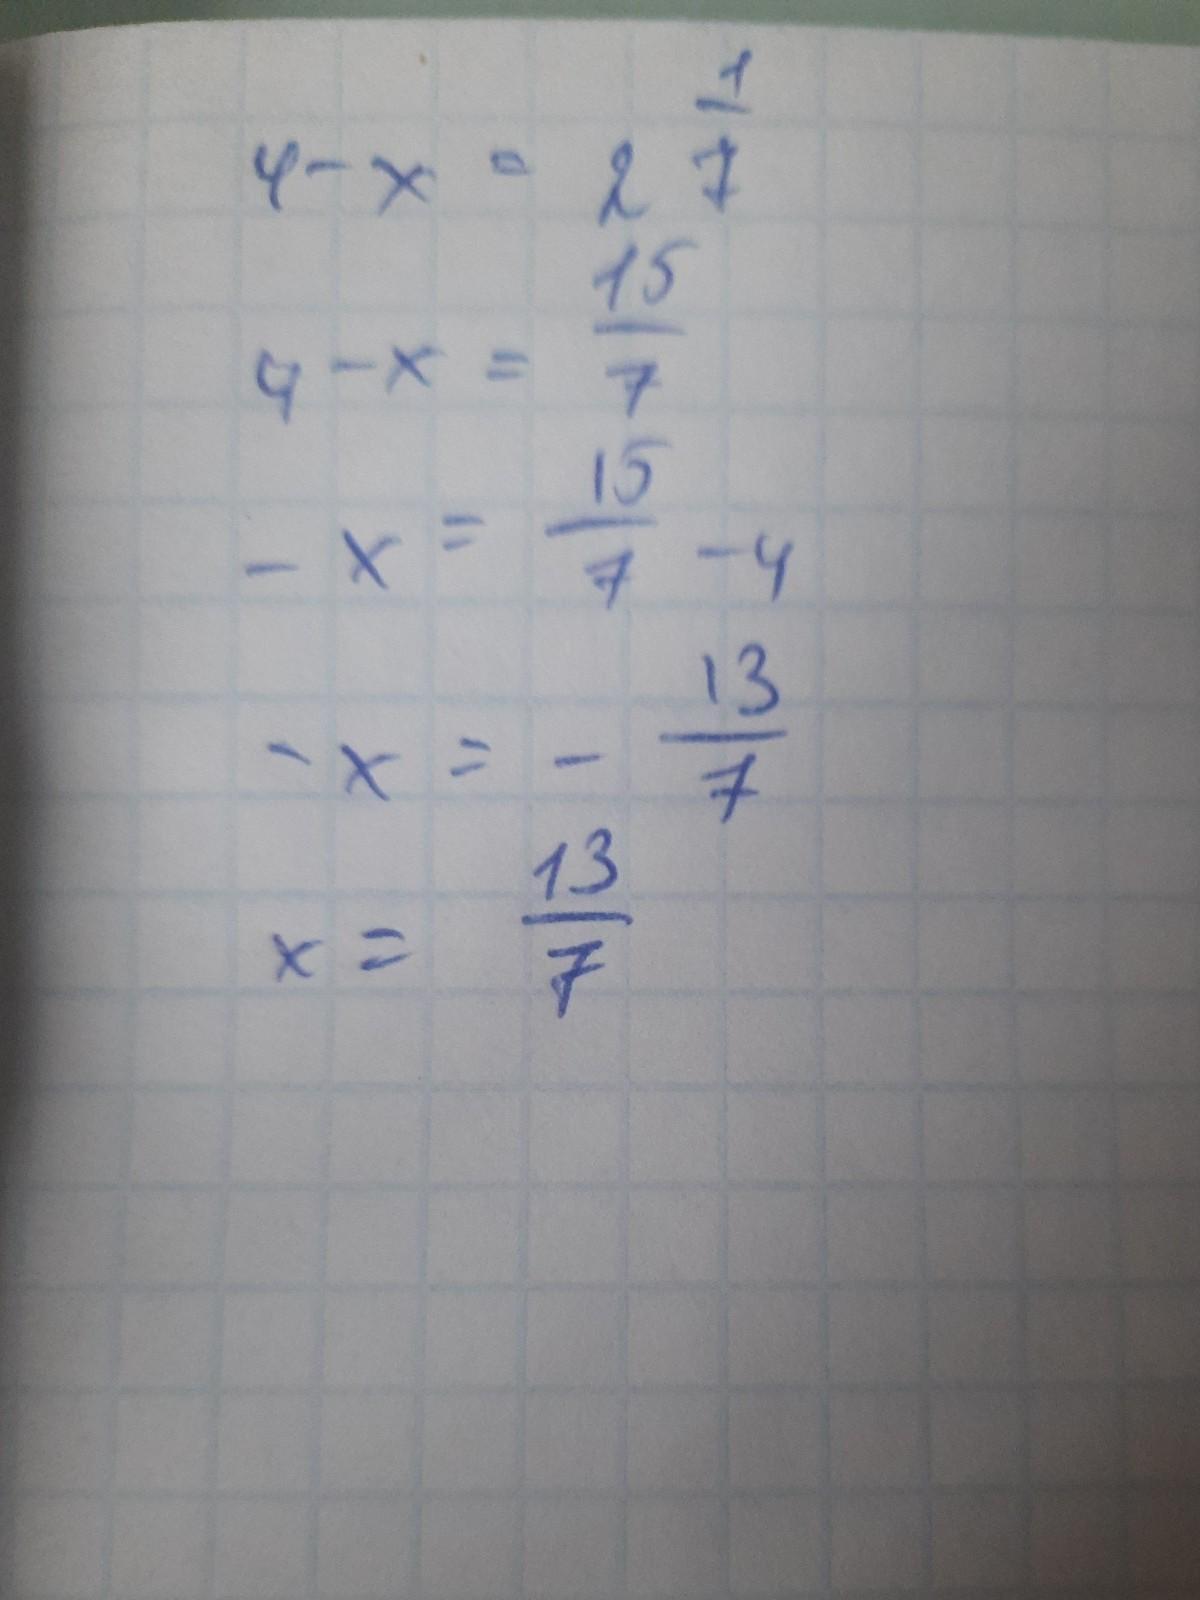 4 - x = 2 1/7
4 - x = 15/7
- x = 15/7 - 4
- x = - 13/7
x = 13/7